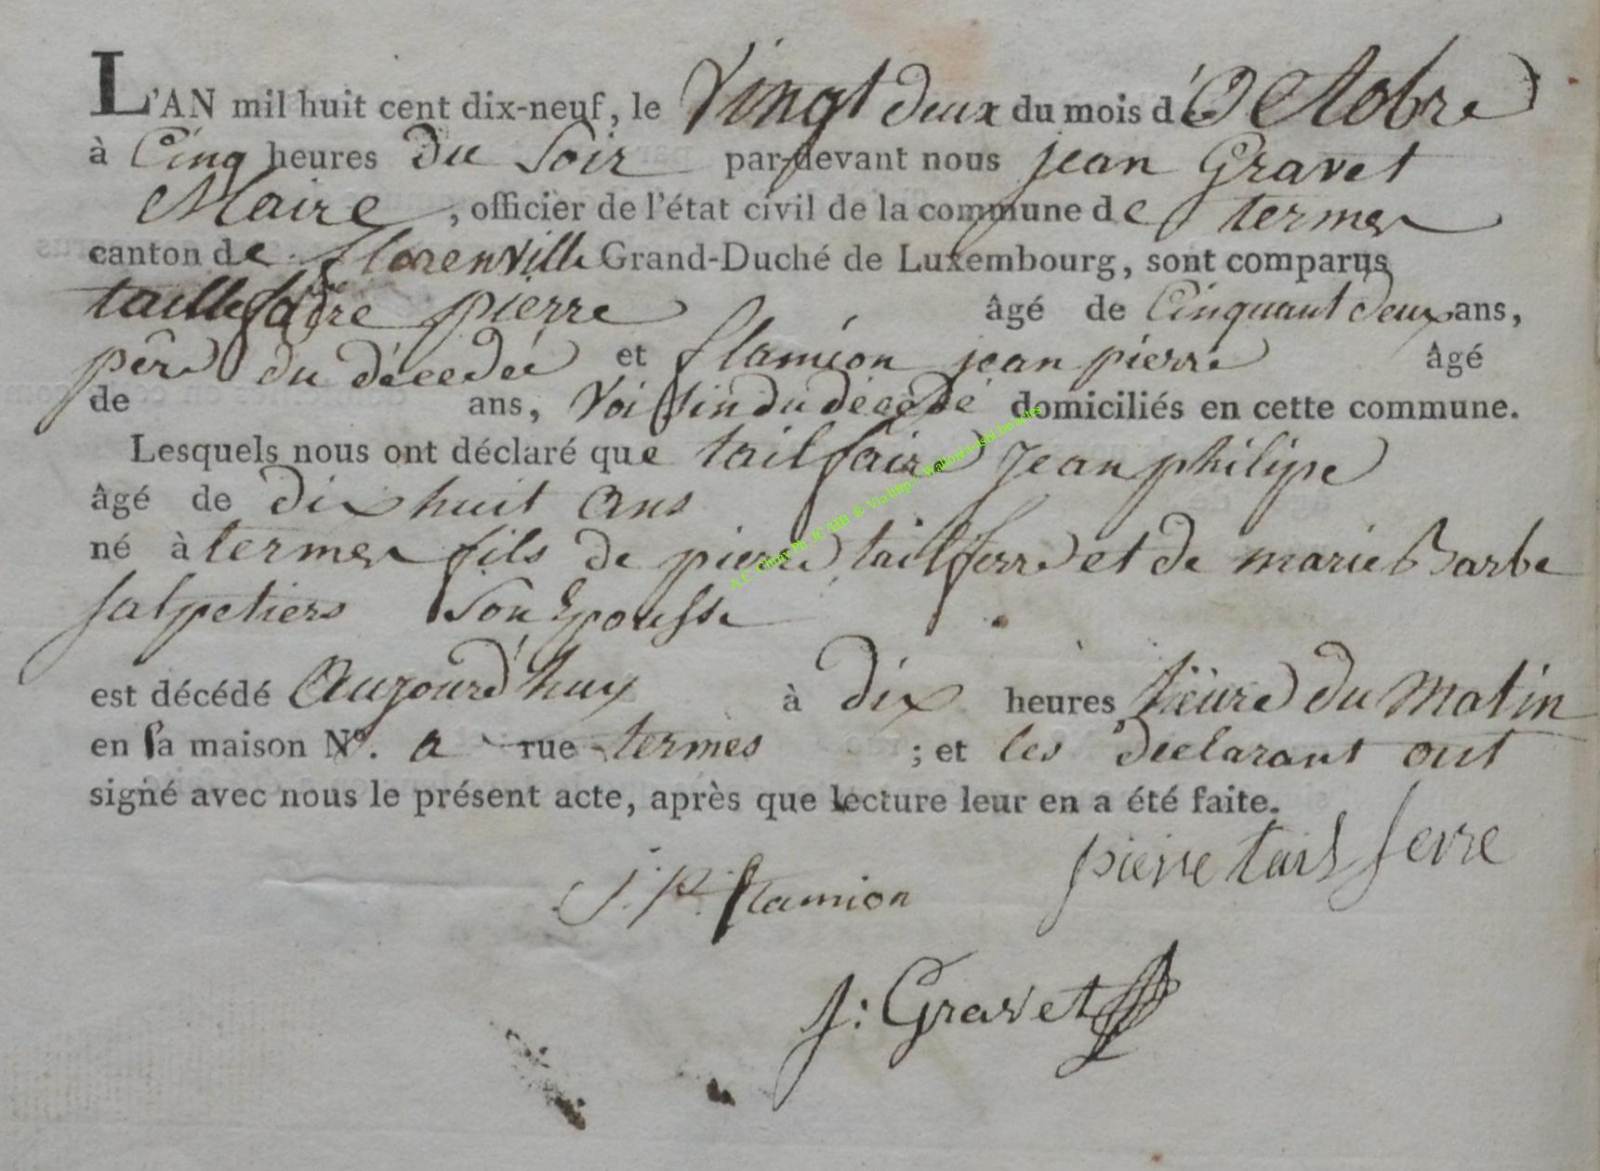 L'AN mil huit cent dix-neuf, le Vingt deux du mois d'Octobre
à Cinq heures du Soir par-devant nous jean Gravet
Maire, officier de l'état civil de la commune de termes
canton de florenville Grand-Duché de Luxembourg, sont comparus
pierre âgé de Cinquant deux ans,
père du décedeé et flamion jean pierre âgé
de ans, Voissin du décedé domiciliés en cette commune.
Lesquels nous ont déclaré que tailfaire jean philipe
âgé de dix huit ans
né à termes fils de pierre tailferre et de marie Barbe
salpetiers Son Epousse
est décédé aujourd'huy à dix heures du matin
en sa maison N°. a rue termes ; et les declarant ont
signé avec nous le présent acte, après que lecture leur en a été faite.
J. P. flamion pierre tailferre
J: Gravet